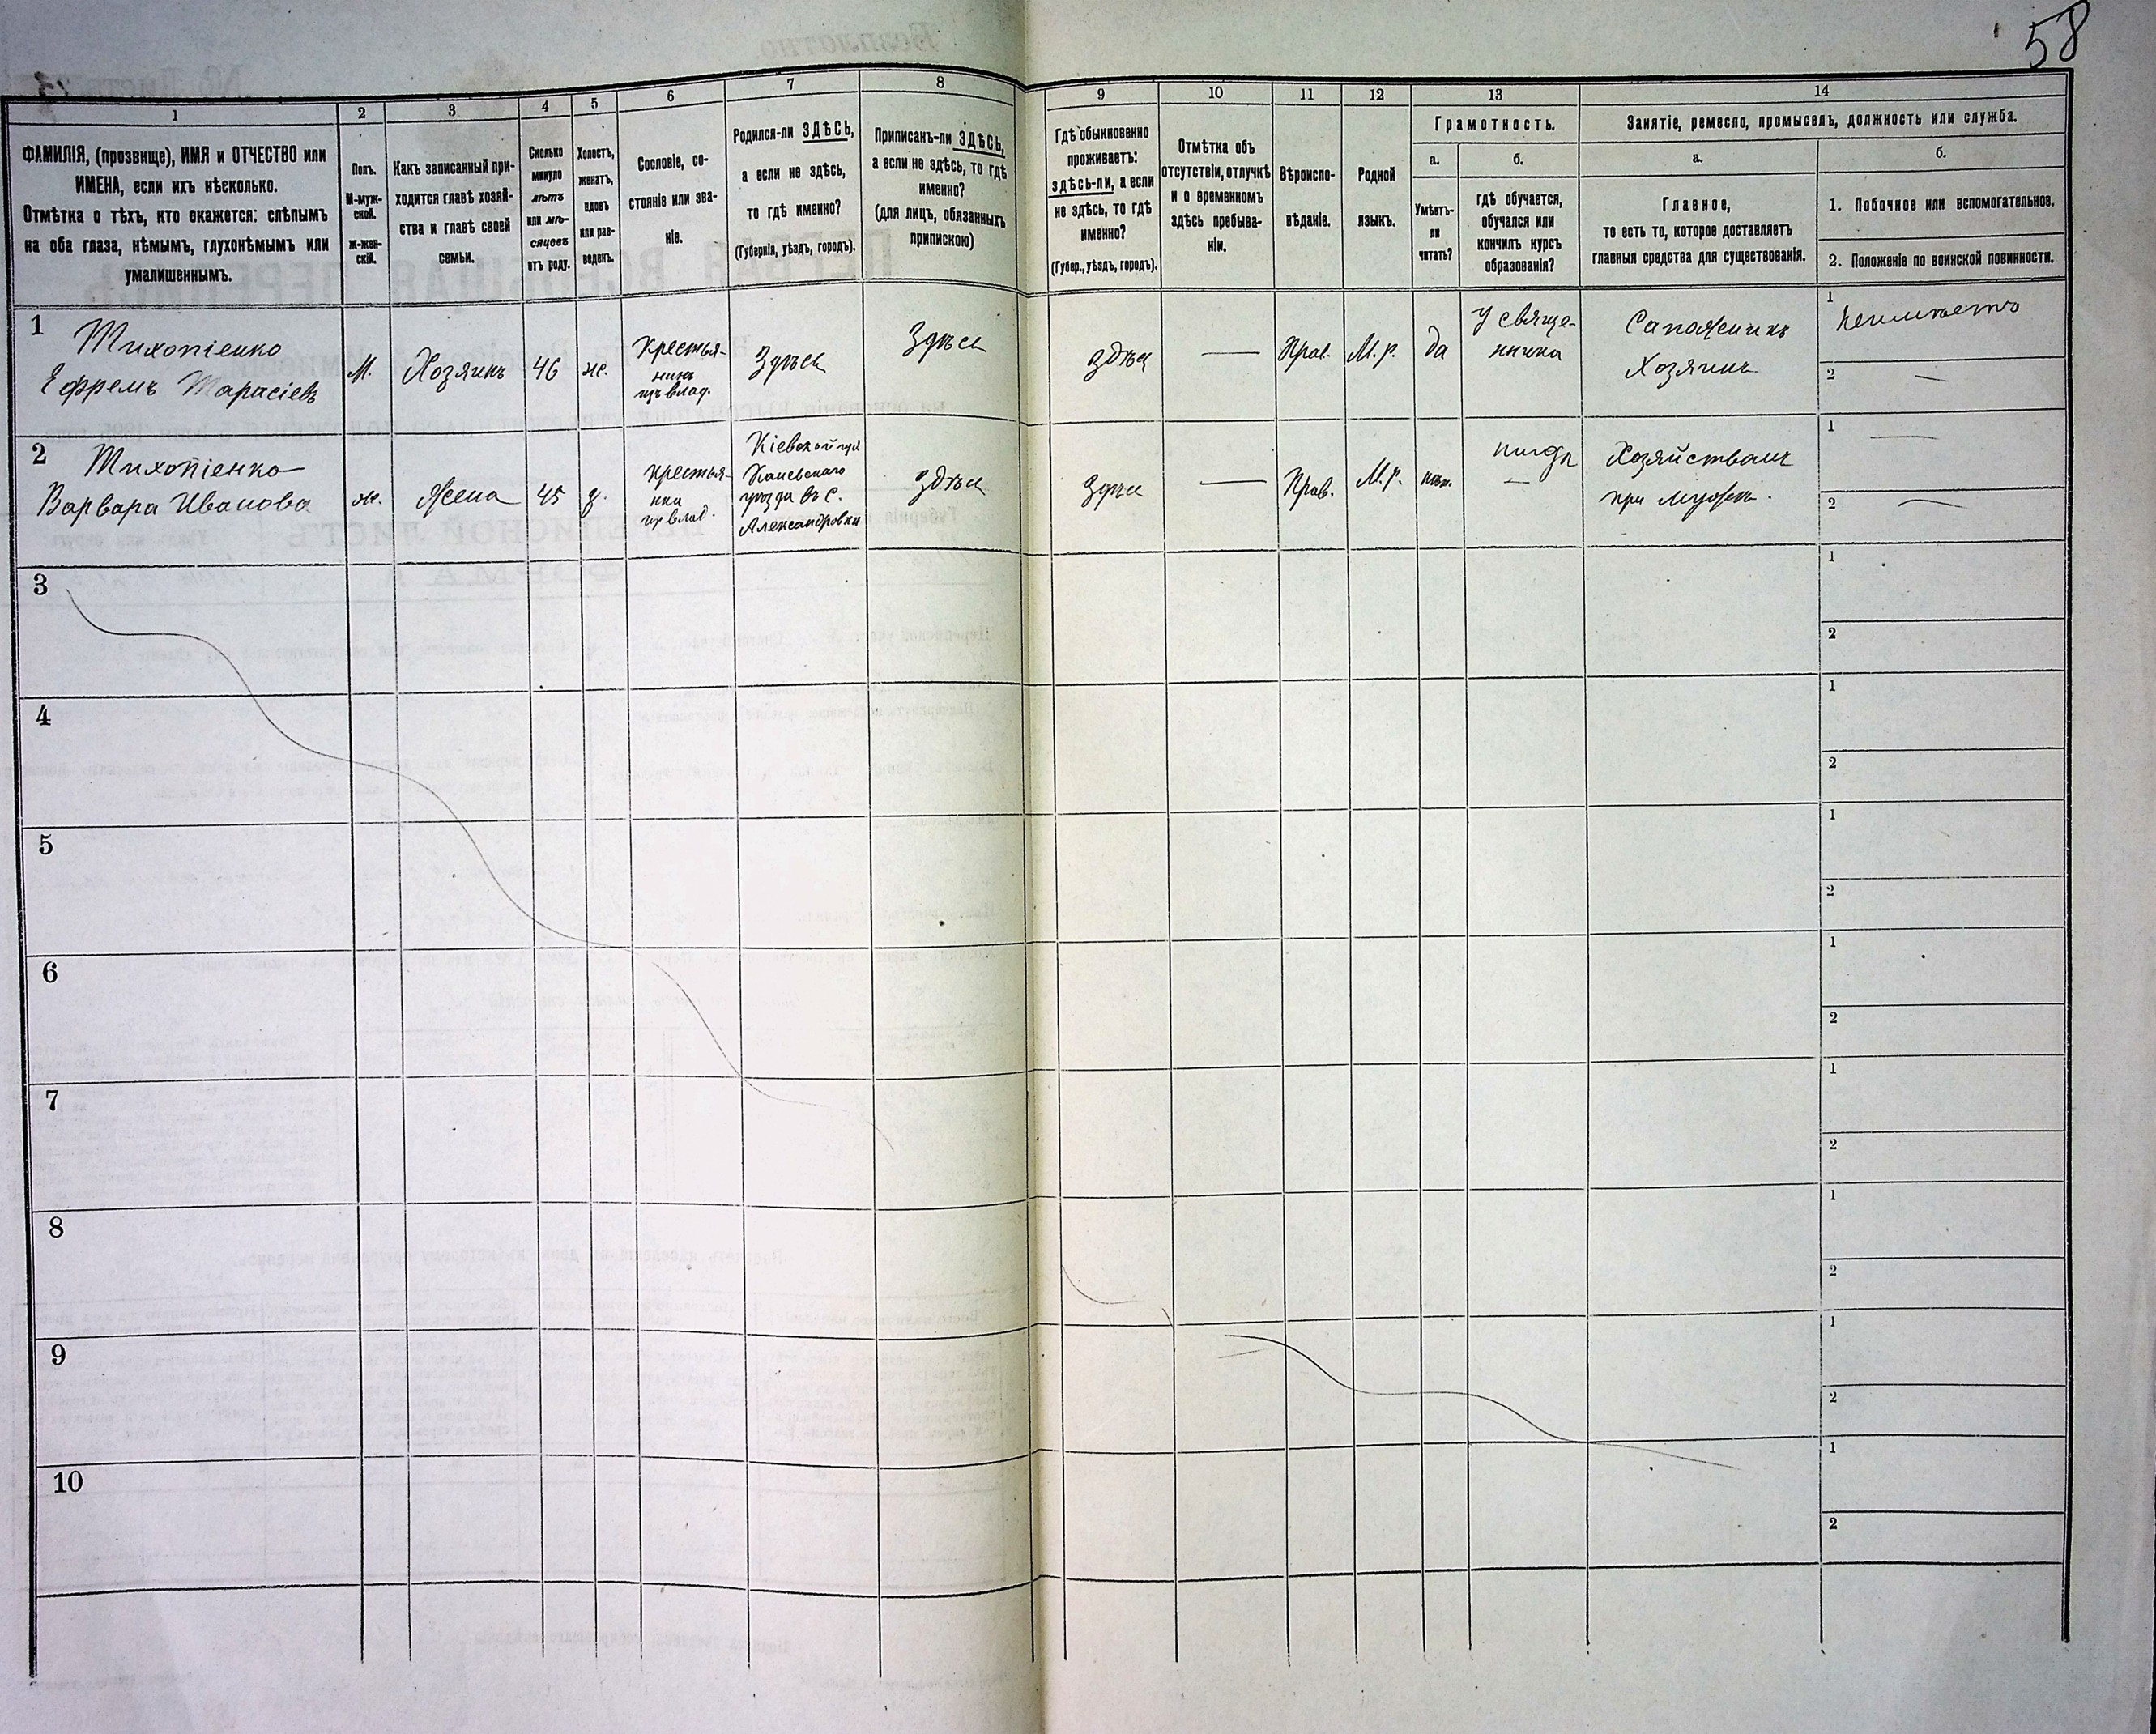 58
1
2
3
4
5
6
7
8
9
10
11
12
13
14
ФАМИЛІЯ, (прозвище), ИМЯ и ОТЧЕСТВО или
ИМЕНА, если ихъ нѣсколько.
Отмѣтка о тѣхъ, кто окажется: слѣпымъ
на оба глаза, нѣмымъ, глухонѣмымъ или
умалишеннымъ.
Полъ.
М-муж-
ской.
Ж-жен-
скій.
Какъ записанный при-
ходится главѣ хозяй-
ства и главѣ своей
семьи.
Сколько
минуло
лѣтъ
или мѣ-
сяцевъ
отъ роду.
Холостъ,
женатъ,
вдовъ
или раз-
веденъ.
Сословіе, со-
стояніе или зва-
ніе.
Родился-ли ЗДѢСЬ,
а если не здѣсь,
то гдѣ именно?
(Губернія, уѣздъ, городъ).
Приписанъ-ли ЗДѢСЬ,
а если не здѣсь, то гдѣ
именно?
(для лицъ, обязанныхъ
припискою)
Гдѣ обыкновенно
проживаетъ:
здѣсь-ли, а если
не здѣсь, то гдѣ
именно?
(Губер., уѣздъ, городъ).
Отмѣтка объ
отсутствіи, отлучкѣ
и о временномъ
здѣсь пребыва-
ніи.
Вѣроиспо-
вѣданіе.
Родной
языкъ.
Грамотность.
а.
Умѣетъ-
ли
читать?
б.
гдѣ обучается,
обучался или
кончилъ курсъ
образованія?
Занятіе, ремесло, промыселъ, должность или служба.
а.
Главное,
то есть то, которое доставляетъ
главныя средства для существованія.
б.
1. Побочное или вспомогательное.
2. Положеніе по воинской повинности.
1
Тихопіенко
Ефремъ Тарасіевъ
м.
Хозяинъ
46
ж.
Крестья-
нинъ
изъ влад.
Здѣсь
Здѣсь
здѣсь
—
Прав.
М. р.
да
у свяще-
нника
Сапожникъ
Хозяинъ
1
2 —
2
Тихопіенко
Варвара Иванова
ж.
Жена
45
з.
Крестья-
нка
изъ влад.
Кіевской губ
Каневскаго
уѣзда въ с.
Александровки
здѣсь
здѣсь
—
Прав.
М. р.
нѣт.
нигдѣ
—
Хозяйствомъ
при мужѣ.
1 —
2 —
3
1
2
4
1
2
5
1
2
6
1
2
7
1
2
8
1
2
9
1
2
10
1
2